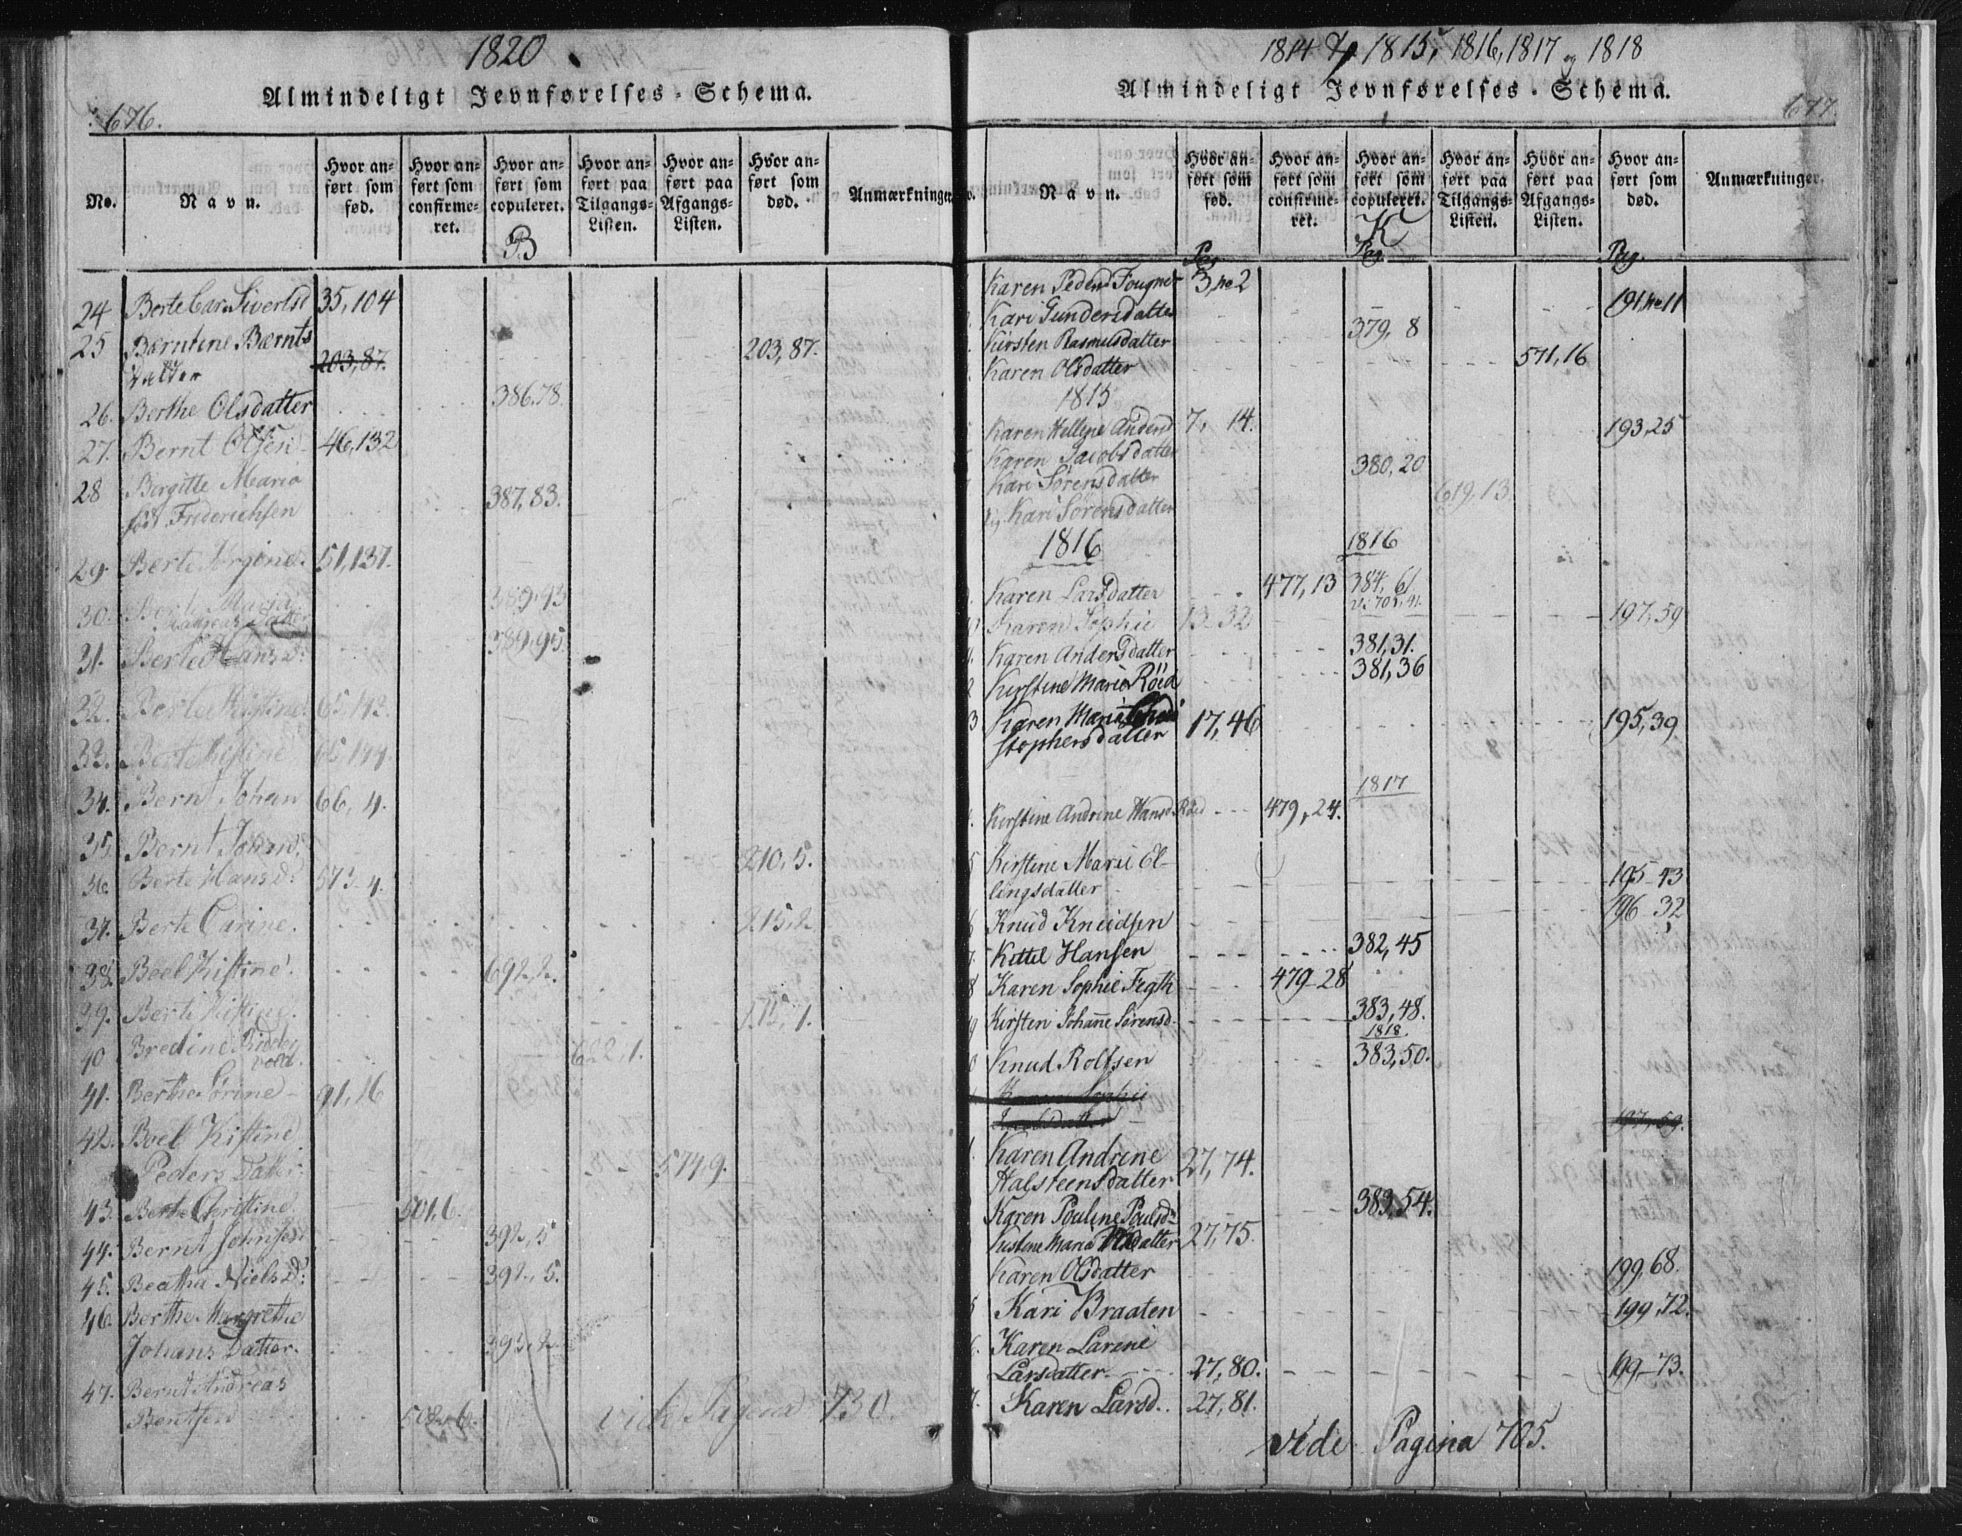 1820
Almindeligt Jevnførelses-Schema.
676.
No.
Navn.
Hvor anført som fød.
Hvor anført som confirmeret.
Hvor anført som copuleret.
Hvor anført paa Tilgangs-Listen.
Hvor anført paa Afgangs-Listen.
Hvor anført som død.
Anmærkninger
B
24 Berte Car. Sivertsd 35, 104
25 Berntine Bernts
datter 203,87. 203,87.
26. Berthe Olsdatter 386.78.
27. Bernt Olsen 46,132
28 Birgitte Maria
fød Friderichsen 387,83.
29. Berte Jørgine. 51,137.
30. Berte Maria 389.93
31. Berte Hansd: 389,95.
32. Berte Kistine. 65,
33. Berte Kistine
34. Bernt Johan 66, 4.
35. Bernt 210, 5.
36. Berte Hansd: 573-4.
37. Berte Carine. 215,2
38. Boel Kistine. 692 2.
39. Berte Kistine.
40 Bredine 622,1.
vold.
41. Berthe Sørine 91,16
42. Boel Kistine
Peders Datter. 574,9.
43. Berte Christine 501,6.
44. Bernt Johnsen 392, 5
45. Beatha Nielsd: 392, 5.
46. Berthe Margrethe
Johans Datter. 393,2
47. Bernt Andreas
Berntsen 502,6.
vide Pagina 730.
1814 & 1815, 1816, 1817 og 1818
Almindeligt Jevnførelses-Schema.
677.
Navn.
Hvor anført som fød.
Hvor anført som confirmeret.
Hvor anført som copuleret.
Hvor anført paa Tilgangs-Listen.
Hvor anført paa Afgangs-Listen.
Hvor anført som død.
Anmærkninger.
K
Pag. Pag. Pag.
Karen Pedersd Fougner 3, no 2
Kari Gundersdatter 191, no 11
Kirsten Rasmusdatter 379, 8
Karen Olsdatter 571,16
1815
Karen Hellene Andersd 7, 14. 193,25
Karen Jacobsdatter 380,20
Kari Sørensdatter 619.13.
Kari Sørensdatter
1816 1816
Karen Larsdatter 477,13 384, 61
Karen Sophie 13-32 197,59
Karen Andersdatter 381,31.
Kirstine Marie Röed 381,36
Karen Maria Christophersdatter 17,46 195,39
1817
Kirstine Andrine Hansd Röed 479,24.
Kirstine Marie Ellingsdatter 195-43
Knud Knudsen 196 32
Kittel Hansen 382,45
Karen Sophie Fegth 479-28
Kirsten Johanne Sørensd. 383,48.
1818.
Knud Rolfsen 383,50.
Karen Sophie 197,59.
Karen Andrine
Halsteensdatter 27,74.
Karen Pouline Poulsdr 383,54.
Kirstine Maria Olsdatter 27,75.
Karen Olsdatter 199,68.
Kari Braaten 199,72.
Karen Larine
Larsdatter 27,80. 199-73.
Karen Larsd. 27,81.
vide Pagina 705.